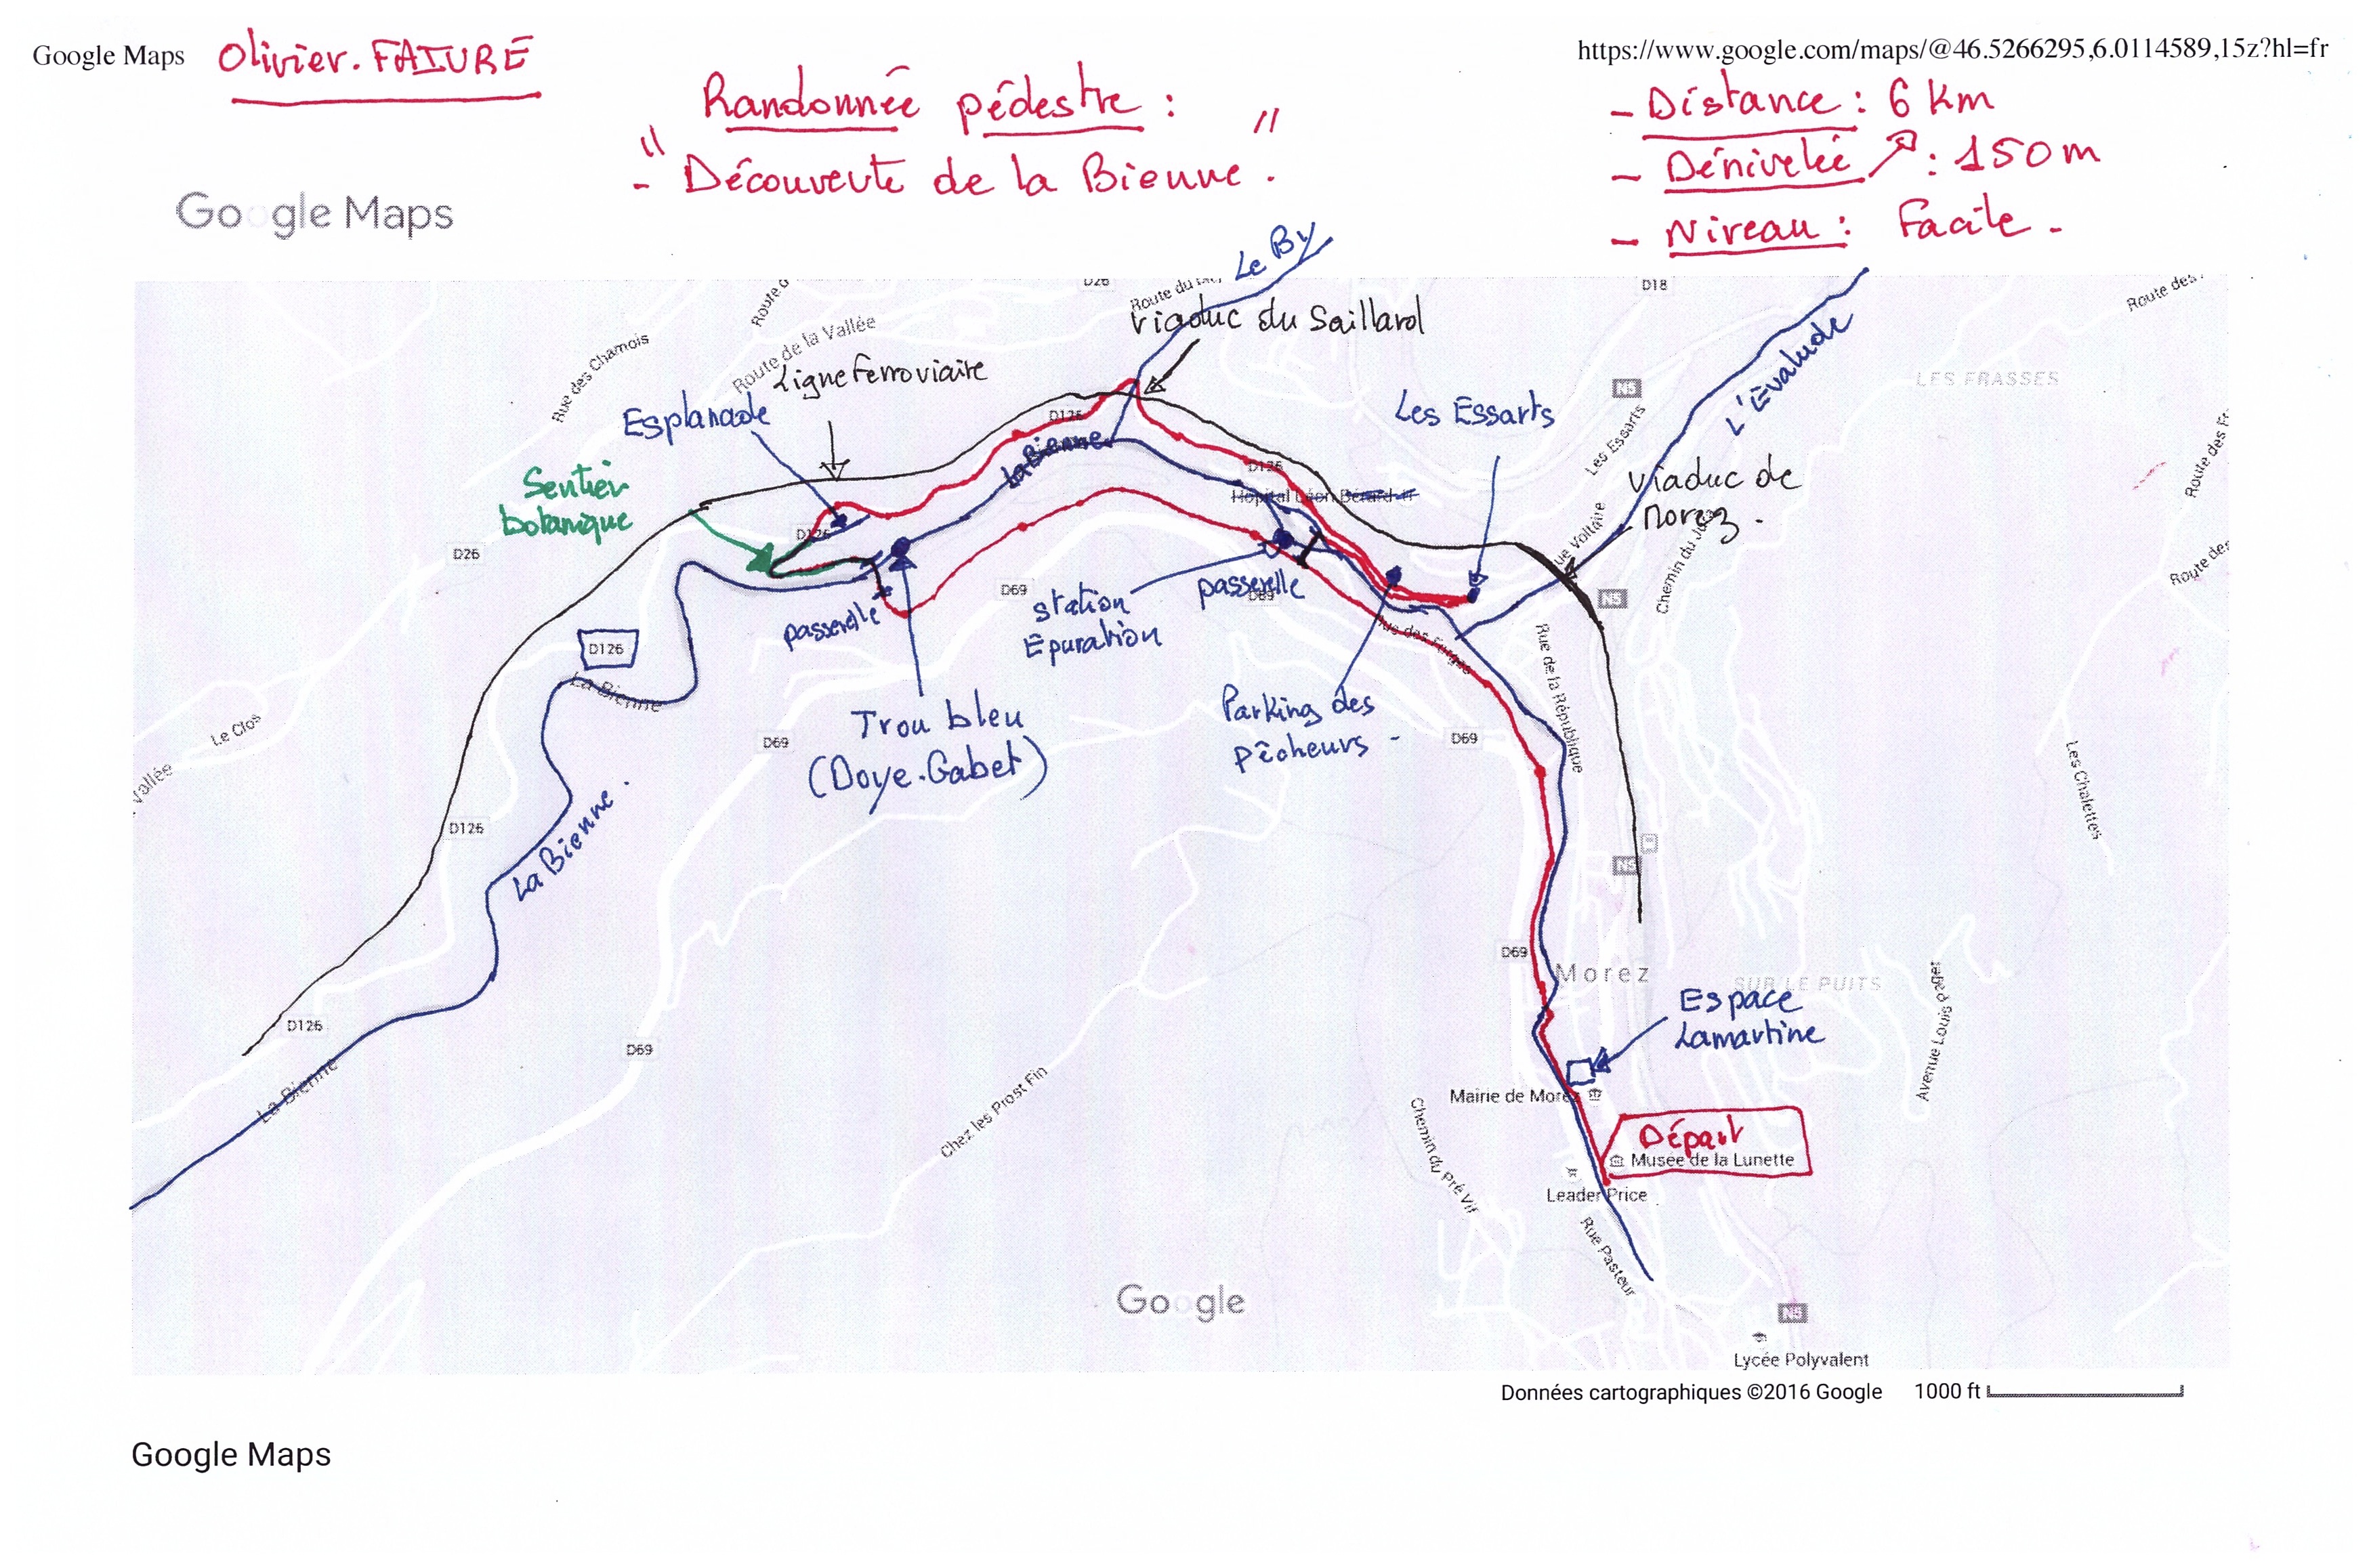 Google Maps
Olivier. FAIVRE
https://www.google.com/maps/@46.5266295,6.0114589,15z?hl=fr
Randonnée pédestre :
" - Découverte de la Bienne . "
- Distance : 6 km
- Dénivelée ↗ : 150 m
- Niveau : Facile -
Google Maps
Le By
D26
D18
Route des
Viaduc du Saillard
Rue des Chamois
Route de la Vallée
Ligne Ferroviaire
L'Évalude
N5
LES FRASSES
Esplanade
D126
Les Essarts
Les Essarts
La Bienne
D126
Sentier
botanique
Viaduc de
Morez .
Hôpital Léon Bérard
Rue Voltaire
Route des
D126
D26
Chemin du Jura
D69
passerelle
station
Epuration
passerelle
D69
N5
D126
La Bienne
Rue de la République
Parking des
Pêcheurs -
Trou bleu
(Doye-Gabet)
Le Clos
D69
D69
Vallée
Les Chalettes
La Bienne .
D126
N5
D69
Morez
SUR LE PUITS
Espace
Lamartine
Avenue Louis Paget
D126
D69
La Bienne
Chez les Prost Fin
Mairie de Morez
Chemin du Pré Vif
Départ
Musée de la Lunette
Leader Price
Rue Pasteur
Google
N5
Lycée Polyvalent
Données cartographiques ©2016 Google
1000 ft
Google Maps